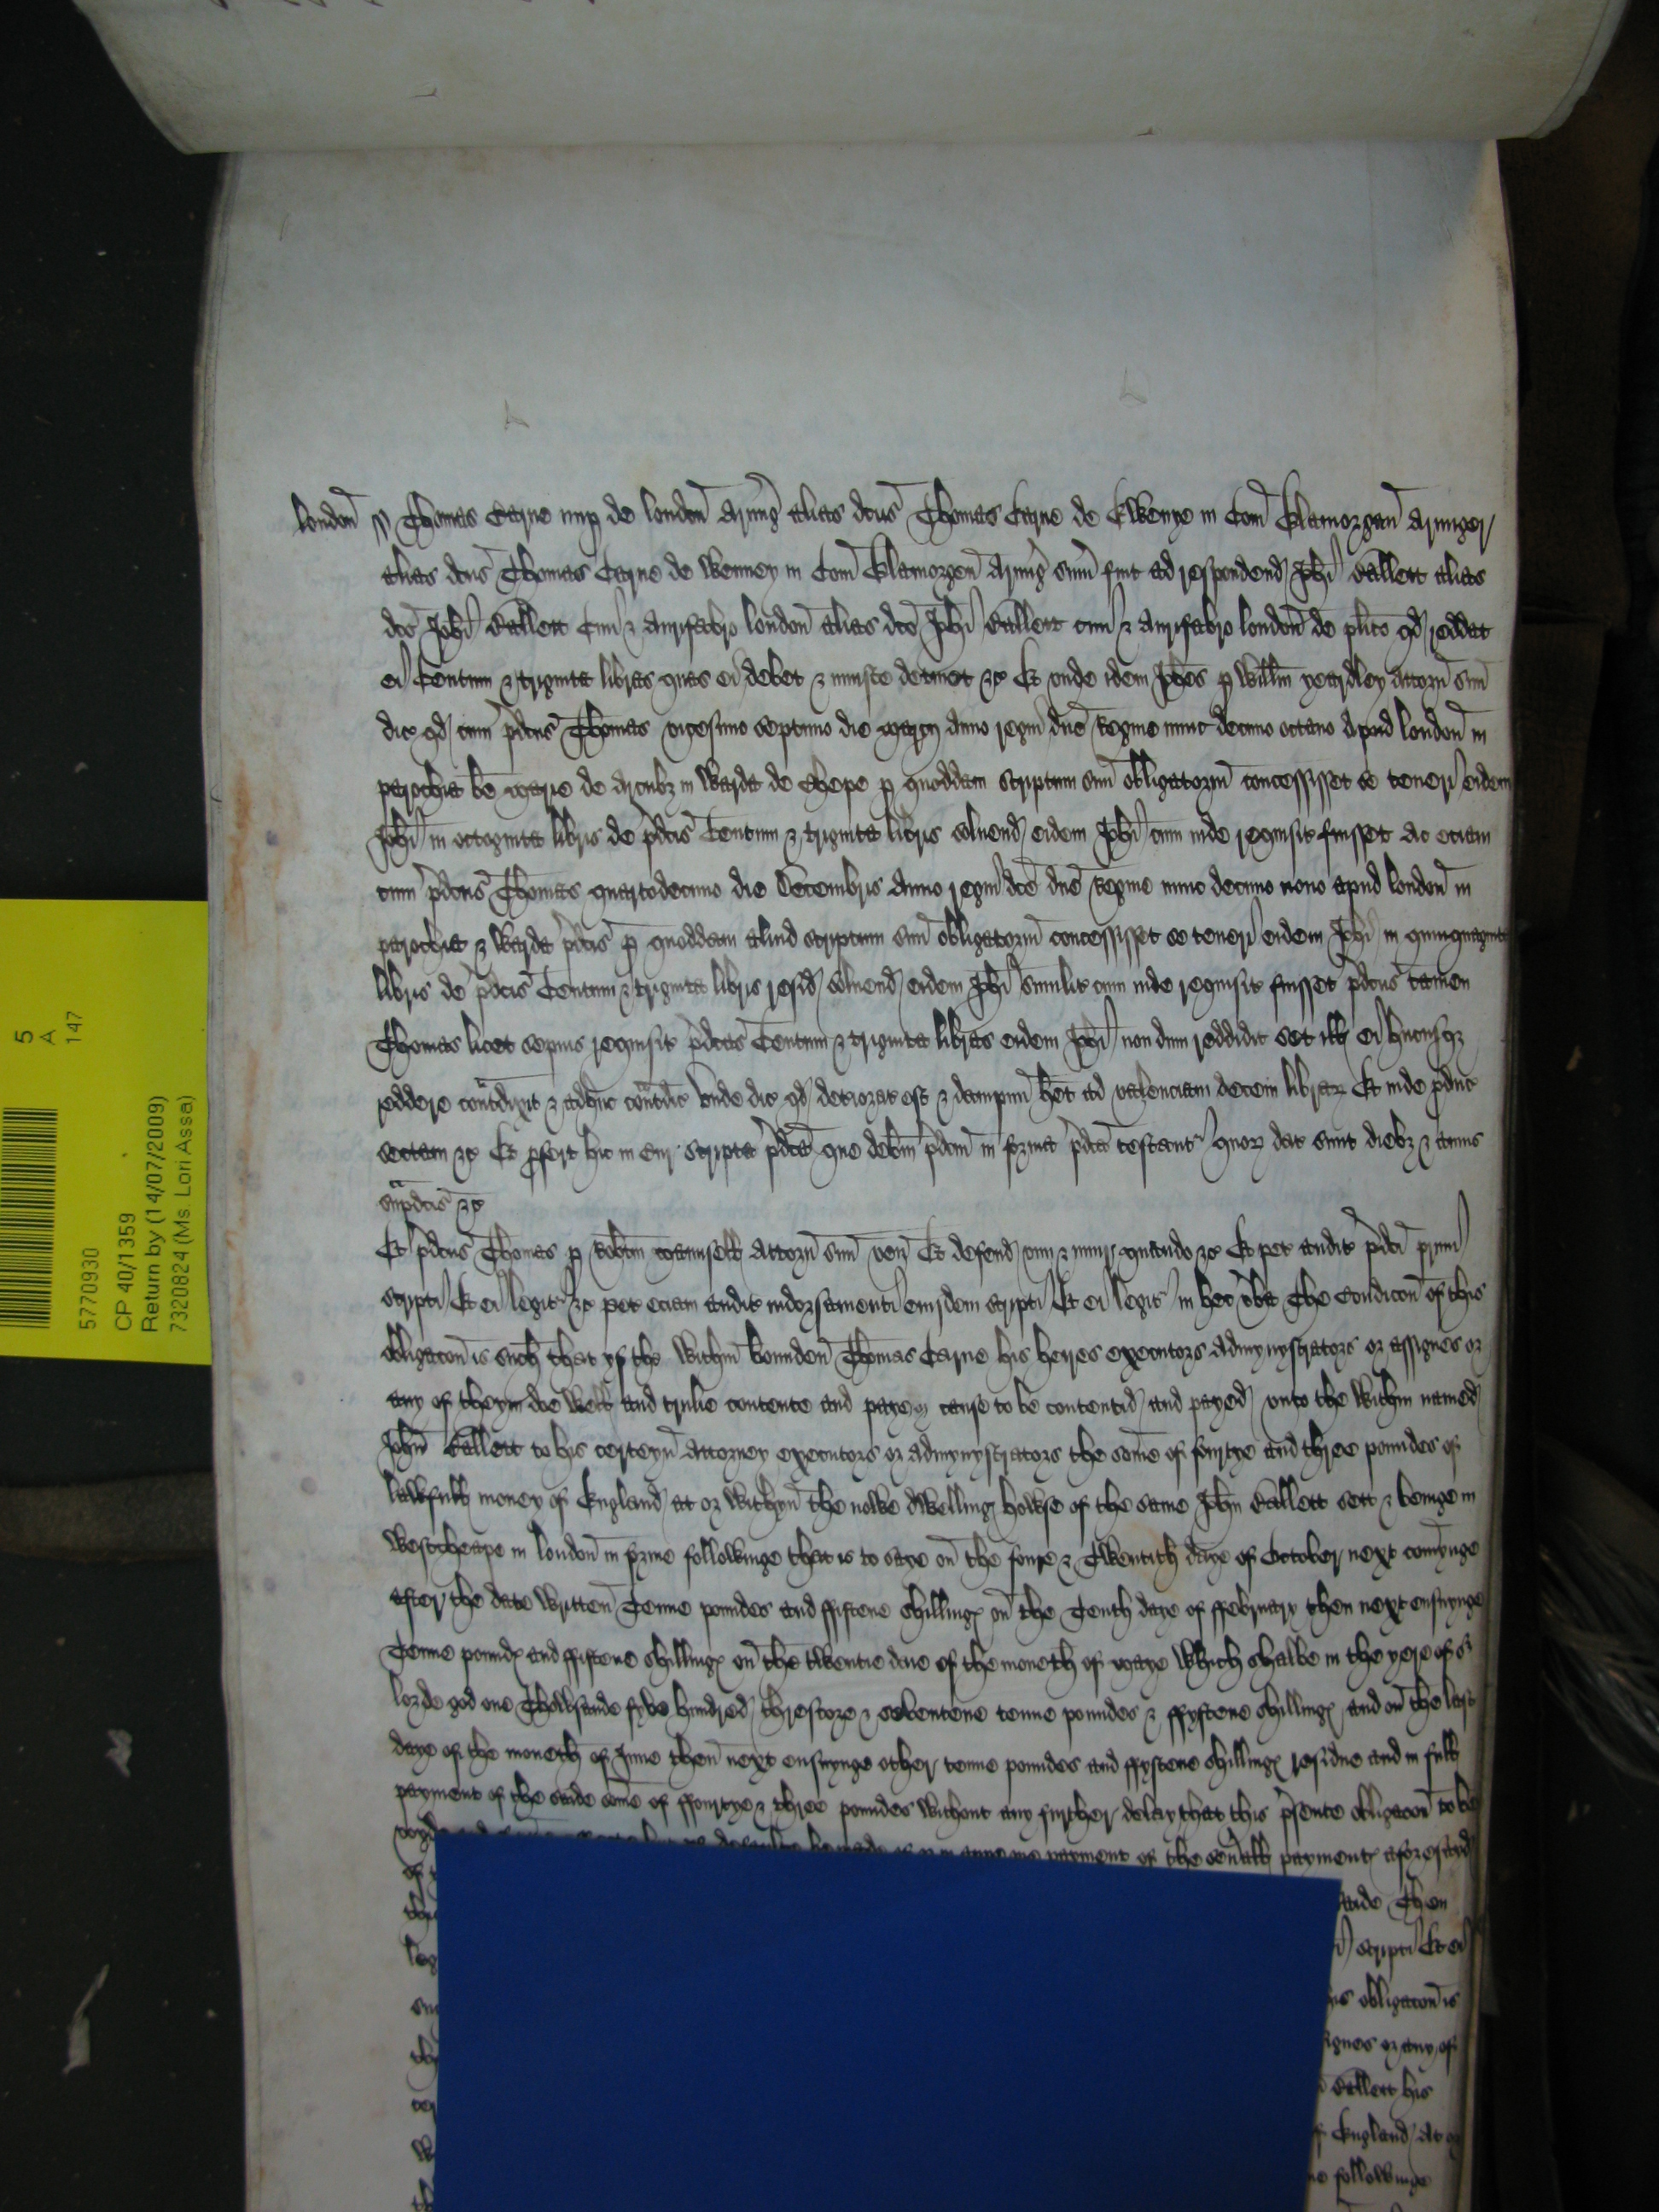 londoñ ss Thomas Carne nup de londoñ Armig̃ alias dcus Thomas Carne de Ewenye in Com̃ Glamorgañ Armiger
alias dcus Thomas Carne de Wenney in Com̃ Glamorgeñ Armig̃ sum̃ fuit ad respondend Joh̃i Rallett alias
dco Joh̃i Rallett Ciui & Aurifabro londoñ alias dco Joh̃i Rallett ciui & Aurifabro londoñ de plito qd reddat
ei Centum & triginta libras quas ei debet & iniuste detinet &c Et unde idem Joh̃es p Will̃m yeardley Attorñ suũ
dic qd cum p̃dcus Thomas vicesimo septimo die marcij anno regni dñe Regine nunc decimo octauo Apud londoñ in
parochia b̃e marie de Arcubz in Warda de Chepe p quoddam scriptum suũ obligatoriũ concessisset se teneri eidem
Joh̃i in octoginta libris de p̃dcis Centum & triginta libris soluend eidem Joh̃i cum inde requisit fuisset Ac eciam
cum p̃dcus Thomas quartodecimo die Decembris Anno regni dc̃e dñe Regine nunc decimo nono apud londoñ in
parochia & Warda p̃dcis p quoddam aliud scriptum suũ obligatoriũ concessisset se teneri eidem Joh̃i in quinquaginta
libris de p̃dcis Centum & triginta libris resid soluend eidem Joh̃i similit cum inde requisit fuisset p̃dcus tamen
Thomas licet sepius requisit p̃dcas Centum & triginta libras eidem Joh̃i non dum reddidit set ill ei hucusqz
reddere contradixit & adhuc contradic Unde dic qd deteriorat est & dampnũ h̃et ad valenciam decem librar Et inde pduc
sectam &c Et pfert hic in Cur scripta p̃dca que debitm p̃dcm in forma p̃dca testant quor dat sunt diebz & annis
sup̃dcis &c
Et p̃dcus Thomas p Rob̃tm Maunsell Attorñ suũ veñ Et defend vim & iniur quando &c Et pet auditũ p̃dci primi
scripti Et ei legit &c pet eciam auditũ indorsamenti eiusdem scripti Et ei legit in hec vba The Condicoñ of this
obligacoñ is such that yf the Within bounden Thomas Carne his heires executors Admynystrators or assignes or
any of theym doe well and trulie contente and paye or cause to be contentid and payed unto the Within named
Joh̃n Rallett to his certeyñ Attorney executors or admynystrators the some of fourtye and three poundes of
lawfull money of England at or Withyñ the nowe dwelling howse of the same Joh̃n Rallett sett & beinge in
Westcheape in londoñ in forme followinge that is to saye oñ the foure & Twentith daye of October next comynge
after the date Written Tenne poundes and ffiftene shilling oñ the Tenth daye of ffebruary then next ensuynge
Tenne pound and ffiftene shilling oñ the twentie daie of the moneth of maye Which shalbe in the yere of or
lorde god one Thowsande fyve hundred threscore & seventene tenne poundes & ffyftene shilling and oñ the last
daye of the moneth of June then next ensuynge other tenne poundes and ffyftene shilling residue and in full
payment of the saide some of ffourtye & three poundes Without any further delay that this p̃sente obligacoñ to be
payment of the seuall payment aforesayd
of
saide Then
scripti Et ei
obligacoñ is
or any of
Rallett his
England At or
followinge